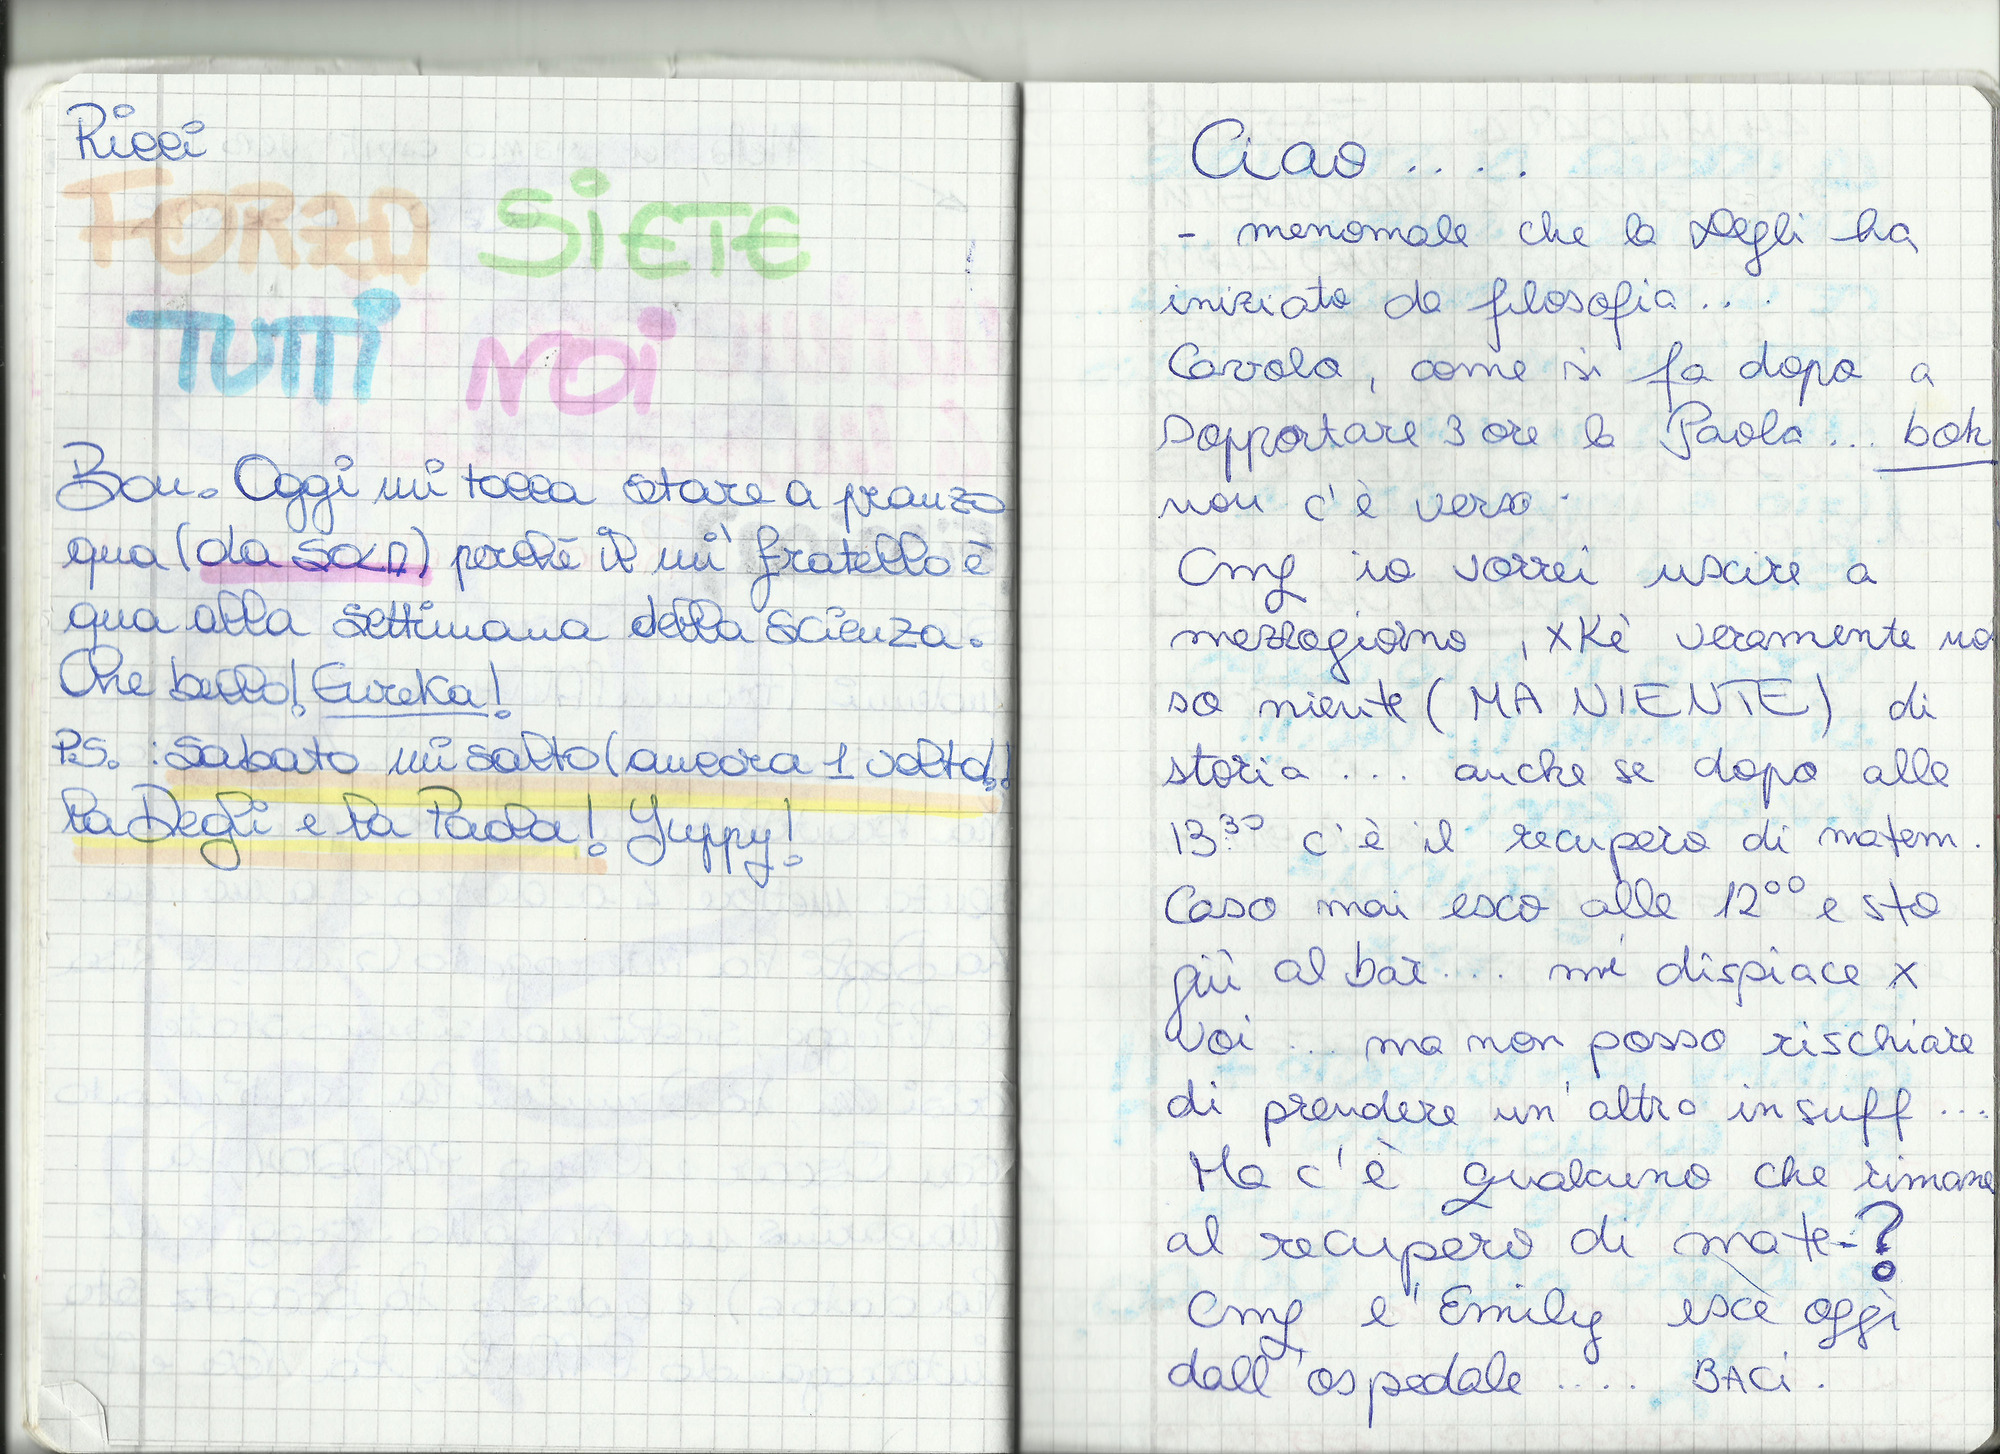 Ricci
FORZA SIETE
TUTTI NOI
Bon. Oggi mi tocca stare a pranzo
qua (da sola) perché il mi' fratello è
qua alla settimana della scienza.
Che bello! Eureka!
P.S. : sabato mi salto (ancora 1 volta!)
la Degli e la Paola! Yuppy!
Ciao ....
- menomale che la Degli ha
iniziato da filosofia ...
Cavolo, come si fa dopo a
sopportare 3 ore la Paola ... boh
non c'è verso.
Cmq io vorrei uscire a
mezzogiorno, xKè veramente no
so niente (MA NIENTE) di
storia .... anche se dopo alle
13:30 c'è il recupero di matem.
Caso mai esco alle 12°° e sto
giù al bar .... mi dispiace x
voi ... ma non posso rischiare
di prendere un'altro insuff ...
Ma c'è qualcuno che rimane
al recupero di mate-?
Cmq e' Emily esce oggi
dall'ospedale .... BACI.